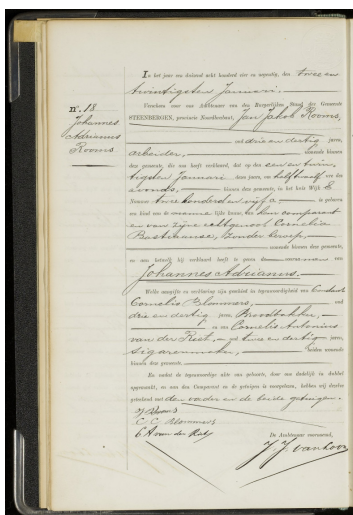 In het jaar een duizend acht honderd vier en negentig, den twee en
twintigsten Januari.
Verscheen voor ons Ambtenaar van den Burgerlijken Stand der Gemeente
n°. 18
Johannes
Adrianus
Rooms
STEENBERGEN, provincie Noordbrabant, Jan Jakob Rooms,
oud drie en dertig jaren,
arbeider, wonende binnen
deze gemeente, die ons heeft verklaard, dat op den een en twin
tigsten Januari dezes jaars, om half twaalf ure des
avonds, binnen deze gemeente, in het huis Wijk E
Nummer twee honderd en vijf a is geboren
een kind van de mannelijke kunne, van hem comparant
en van zijne echtgenoot Cornelia
zonder beroep,
wonende binnen deze gemeente,
en aan hetwelk hij verklaard heeft te geven de voornamen van
Johannes Adrianus.
Welke aangifte en verklaring zijn geschied in tegenwoordigheid van Constant
Cornelis Blommers, oud
drie en dertig jaren, Broodbakker,
en van Cornelis Antonius
van der Riet, oud twee en dertig jaren,
sigarenmaker, beiden wonende
binnen deze gemeente.
En nadat de tegenwoordige akte van geboorte, door ons dadelijk in dubbel
opgemaakt, en aan den Comparant en de getuigen is voorgelezen, hebben wij dezelve
geteekend met den vader en de beide getuigen.
C C Blommers
C A van der Riet
De Ambtenaar voornoemd,